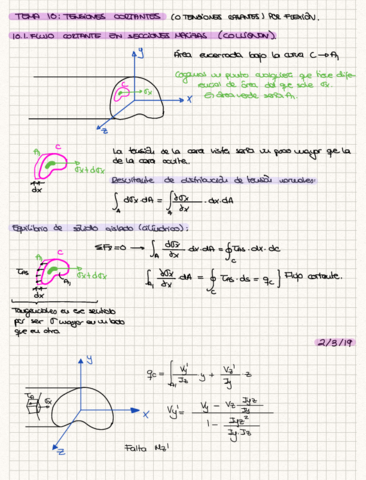 TEMA 10: TENSIONES CORTANTES (O TENSIONES RASANTES) POR FLEXIÓN.
10.1. FLUJO CORTANTE EN SECCIONES MACIZAS (COLLIGNON).
Área encerrada bajo la curva C → A₁
Cogemos un punto cualquiera que tiene dife-
rencial de área del que sale σx.
El área verde sería A₁.
y
C
σx
x
z
A₁
C
σx+dσx
dx
La tensión de la cara vista sería un poco mayor que la
de la cara oculta.
Resultante de distribución de tensión normales:
∫A dσx·dA = ∫A ∂σx/∂x · dx·dA
Equilibrio de sólido aislado (cilíndrico):
ΣFx=0 → ∫A ∂σx/∂x dx·dA = ∮C τns·dx·ds
C
τns
σx+dσx
A₁
dx
∫A₁ ∂σx/∂x dA = ∮C τns·ds = qc] Flujo cortante.
Tangenciales en ese sentido
por ser σ mayor en un lado
que en otro
2/3/19
y
σx
x
z
qc = ∫ Vy'/Iz y + Vz'/Iy z
Vy' = (Vy - Vz Iyz/Iy) / (1 - Iyz²/(Iy·Iz))
Falta Mz'